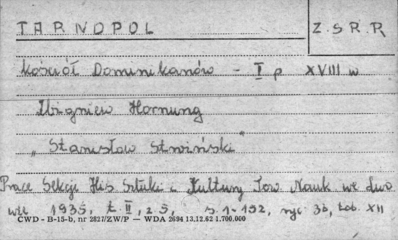 TARNOPOL
Z.S.R.R
Kościół Dominikanów - II p XVIII w
Zbigniew Hornung
„Stanisław Stroiński"
Prace Sekcji His Sztuki i Kultury Tow. Nauk we Lwo
wie 1935, t. II, z 5, s. 1-192, ryc 36, tab. XII
CWD - B-15-b, nr 2827/ZW/P — WDA 2694 13.12.62 1.700.000